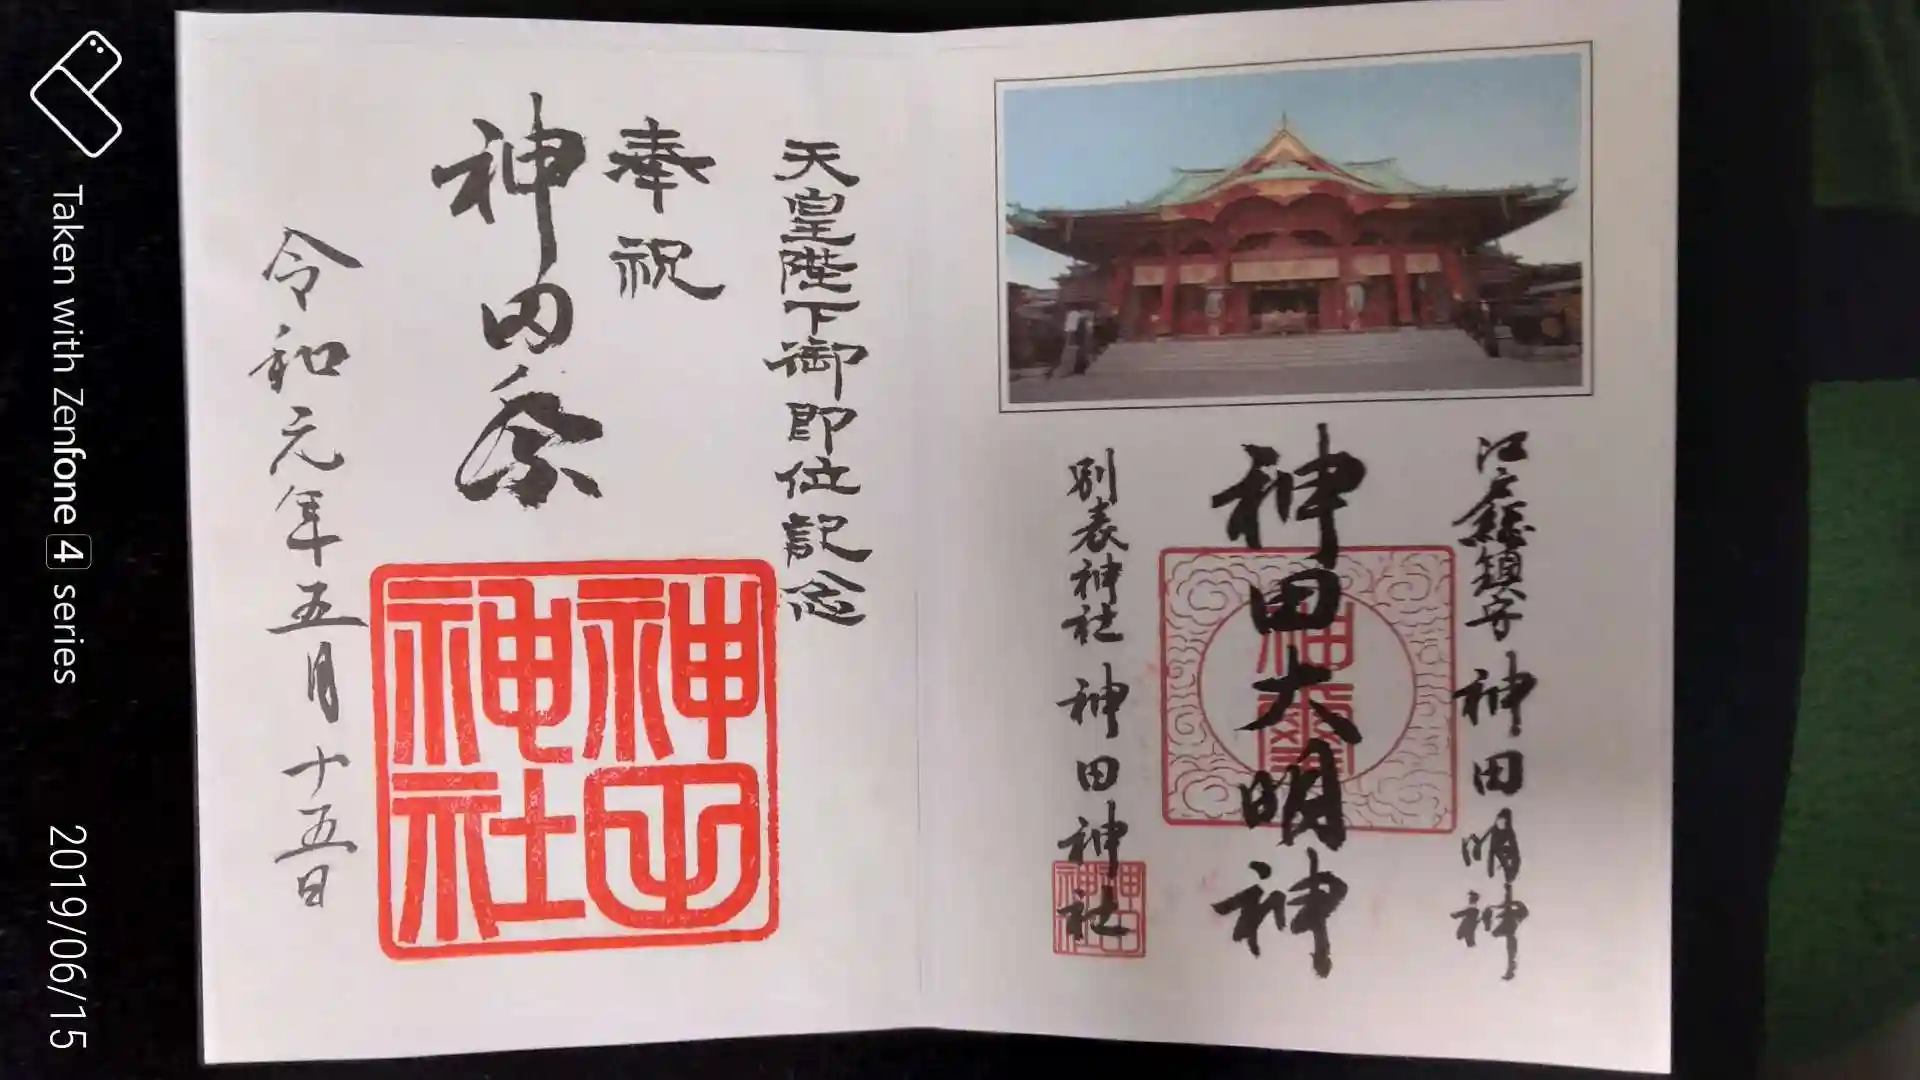 江戸総鎮守 神田明神
神田大明神
別表神社 神田神社
天皇陛下御即位記念
奉祝
神田祭
令和元年五月十五日
神田
神社
神田
神社
Taken with Zenfone 4 series
2019/06/15